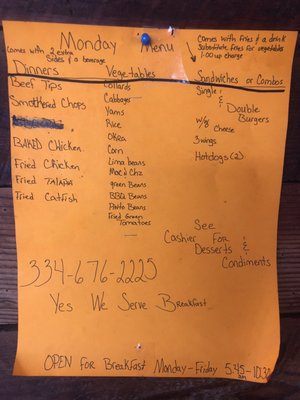 Monday Menu
Comes with 2 extra
sides & a beverage
Comes with fries & a drink
Substitute fries for vegetables
1.00 up charge
Dinners
Beef Tips
Smothered Chops
BAKED Chicken
Fried Chicken
Fried Talapia
Fried Catfish
Vegetables
Collards
Cabbage
Yams
Rice
Okra
Corn
Lima beans
Mac'd Chz
green Beans
BBQ Beans
Pinto Beans
Fried Green
Tomatoes
Sandwiches or Combos
Single &
Double
Burgers
w/& Cheese
3 wings
Hotdogs (2)
See
Cashier For
Desserts &
Condiments
334-676-2225
Yes We Serve Breakfast
OPEN For Breakfast Monday-Friday 5:45am-10:30